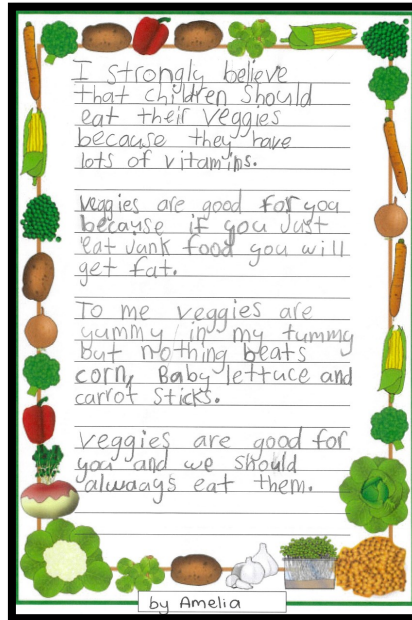 I strongly believe
that children should
eat their veggies
because they have
lots of vitamins.
veggies are good for you
because if you Just
eat Junk food you will
get fat.
To me veggies are
yummy in my tummy
but nothing beats
corn, Baby lettuce and
carrot sticks.
veggies are good for
you and we should
always eat them.
by Amelia